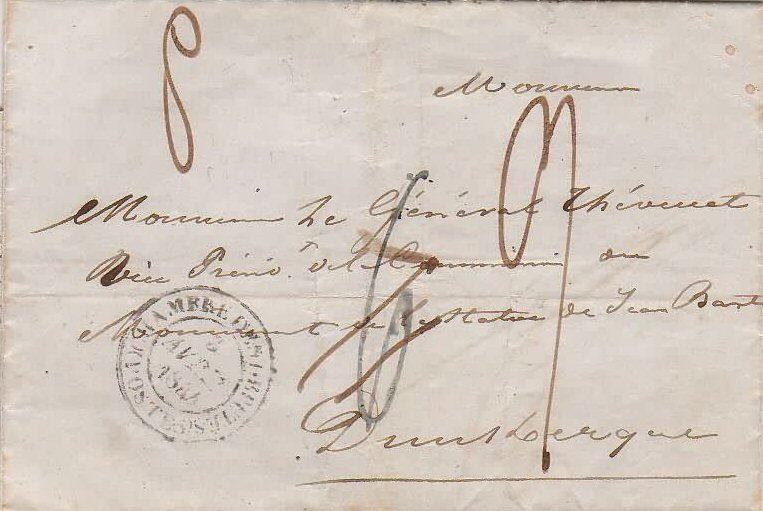 Monsieur
Monsieur Le Général Thévenet
Vice Présid.t de la Commission du
Monument de la statue de Jean Bart
Dunkerque
CHAMBRE DES
AVRIL